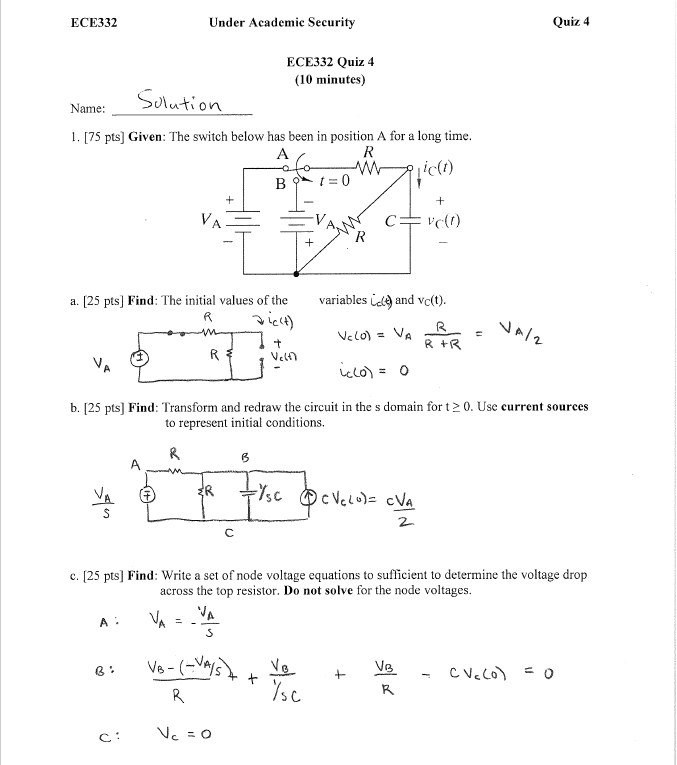 ECE332 Under Academic Security Quiz 4
ECE332 Quiz 4
(10 minutes)
Name: Solution
1. [75 pts] Given: The switch below has been in position A for a long time.
A R
i_C(t)
B t = 0
+ − +
V_A V_A R C v_C(t)
− + −
a. [25 pts] Find: The initial values of the variables i_c(t) and v_C(t).
R i_c(t)
V_c(0) = V_A R/(R+R) = V_A/2
+
R V_c(t)
−
V_A
i_c(0) = 0
b. [25 pts] Find: Transform and redraw the circuit in the s domain for t ≥ 0. Use current sources
to represent initial conditions.
A R B
V_A/s R 1/sC C V_c(0) = C V_A/2
C
c. [25 pts] Find: Write a set of node voltage equations to sufficient to determine the voltage drop
across the top resistor. Do not solve for the node voltages.
A: V_A = - V_A/s
B: (V_B - (-V_A/s))/R + V_B/(1/sC) + V_B/R - C V_c(0) = 0
C: V_c = 0